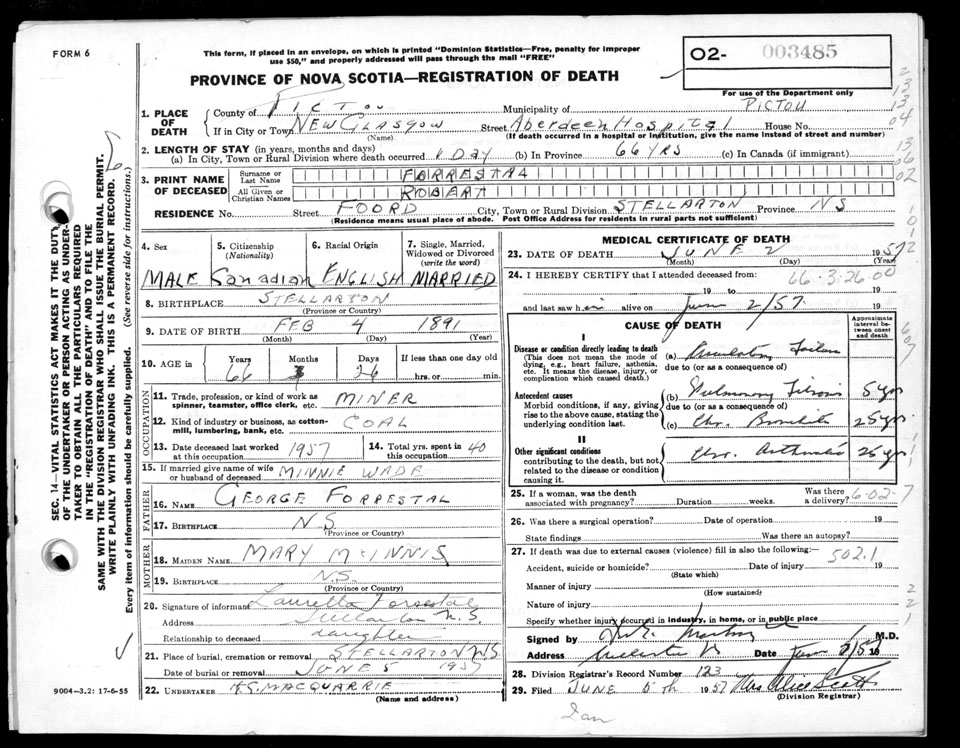 FORM 6
This form, if placed in an envelope, on which is printed "Dominion Statistics—Free, penalty for improper
use $50," and properly addressed will pass through the mail "FREE"
PROVINCE OF NOVA SCOTIA—REGISTRATION OF DEATH
02- 003485
For use of the Department only
1. PLACE OF DEATH
County of PICTOU Municipality of PICTOU
If in City or Town NEW GLASGOW Street Aberdeen Hospital House No.
(Name) (If death occurred in a hospital or institution, give the name instead of street and number)
2. LENGTH OF STAY (in years, months and days)
(a) In City, Town or Rural Division where death occurred 1 DAY (b) In Province 66 YRS (c) In Canada (if immigrant)
3. PRINT NAME OF DECEASED
Surname or Last Name FORRESTAL
All Given or Christian Names ROBERT
RESIDENCE No. Street FOORD City, Town or Rural Division STELLARTON Province NS
(Residence means usual place of abode. Post Office Address for residents in rural parts not sufficient)
4. Sex
5. Citizenship (Nationality)
6. Racial Origin
7. Single, Married, Widowed or Divorced (write the word)
MALE Canadian ENGLISH MARRIED
8. BIRTHPLACE STELLARTON
(Province or Country)
9. DATE OF BIRTH FEB 4 1891
(Month) (Day) (Year)
10. AGE in Years Months Days If less than one day old
66 3 26 hrs. or min.
OCCUPATION
11. Trade, profession, or kind of work as spinner, teamster, office clerk, etc. MINER
12. Kind of industry or business, as cotton-mill, lumbering, bank, etc. COAL
13. Date deceased last worked at this occupation 1957
14. Total yrs. spent in this occupation 40
15. If married give name of wife or husband of deceased MINNIE WADE
FATHER
16. NAME GEORGE FORRESTAL
17. BIRTHPLACE N.S.
(Province or Country)
MOTHER
18. MAIDEN NAME MARY McINNIS
19. BIRTHPLACE N.S.
(Province or Country)
20. Signature of informant Lauretta Forrestal
Address Stellarton N.S.
Relationship to deceased daughter
21. Place of burial, cremation or removal STELLARTON N.S.
Date of burial or removal JUNE 5 1957
22. UNDERTAKER MACQUARRIE
(Name and address)
9004—3.2: 17-6-55
SEC. 14—VITAL STATISTICS ACT MAKES IT THE DUTY
OF THE UNDERTAKER OR PERSON ACTING AS UNDER-
TAKER TO OBTAIN ALL THE PARTICULARS REQUIRED
IN THE "REGISTRATION OF DEATH" AND TO FILE THE
SAME WITH THE DIVISION REGISTRAR WHO SHALL ISSUE THE BURIAL PERMIT.
WRITE PLAINLY WITH UNFADING INK. THIS IS A PERMANENT RECORD.
Every item of information should be carefully supplied. (See reverse side for instructions.)
MEDICAL CERTIFICATE OF DEATH
23. DATE OF DEATH JUNE 2 1957
(Month) (Day) (Year)
66-3-26-00
24. I HEREBY CERTIFY that I attended deceased from:
19 to 19
and last saw him alive on June 2/57 19
CAUSE OF DEATH
Approximate interval between onset and death
I
Disease or condition directly leading to death
(This does not mean the mode of dying, e.g., heart failure, asthenia, etc. It means the disease, injury, or complication which caused death.)
(a) Circulatory Failure
due to (or as a consequence of)
Antecedent causes
Morbid conditions, if any, giving rise to the above cause, stating the underlying condition last.
(b) Pulmonary Fibrosis 5 yrs
due to (or as a consequence of)
(c) Chr. Bronchitis 25 yrs
II
Other significant conditions
contributing to the death, but not related to the disease or condition causing it.
Chr. 25 yrs
25. If a woman, was the death associated with pregnancy? Duration weeks. Was there a delivery?
6-02-7
26. Was there a surgical operation? Date of operation 19
State findings Was there an autopsy?
27. If death was due to external causes (violence) fill in also the following:—
502.1
Accident, suicide or homicide? Date of injury 19
(State which)
Manner of injury
(How sustained)
Nature of injury
Specify whether injury occurred in industry, in home, or in public place
Signed by M.D.
Address Date June 2/57 19
28. Division Registrar's Record Number 123
29. Filed JUNE 5th 1957 Mrs Alice Scott
(Division Registrar)